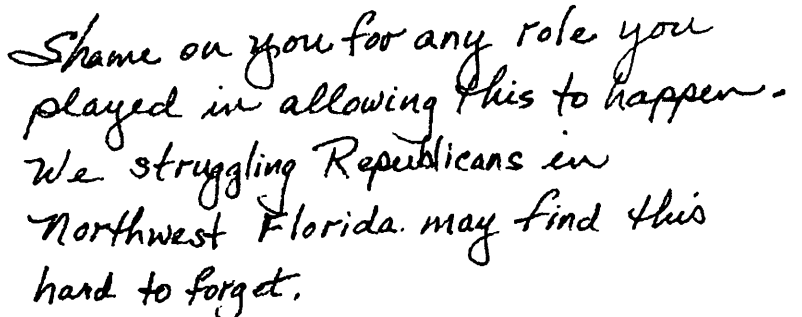 Shame on you for any role you
played in allowing this to happen.
We struggling Republicans in
Northwest Florida may find this
hard to forget.